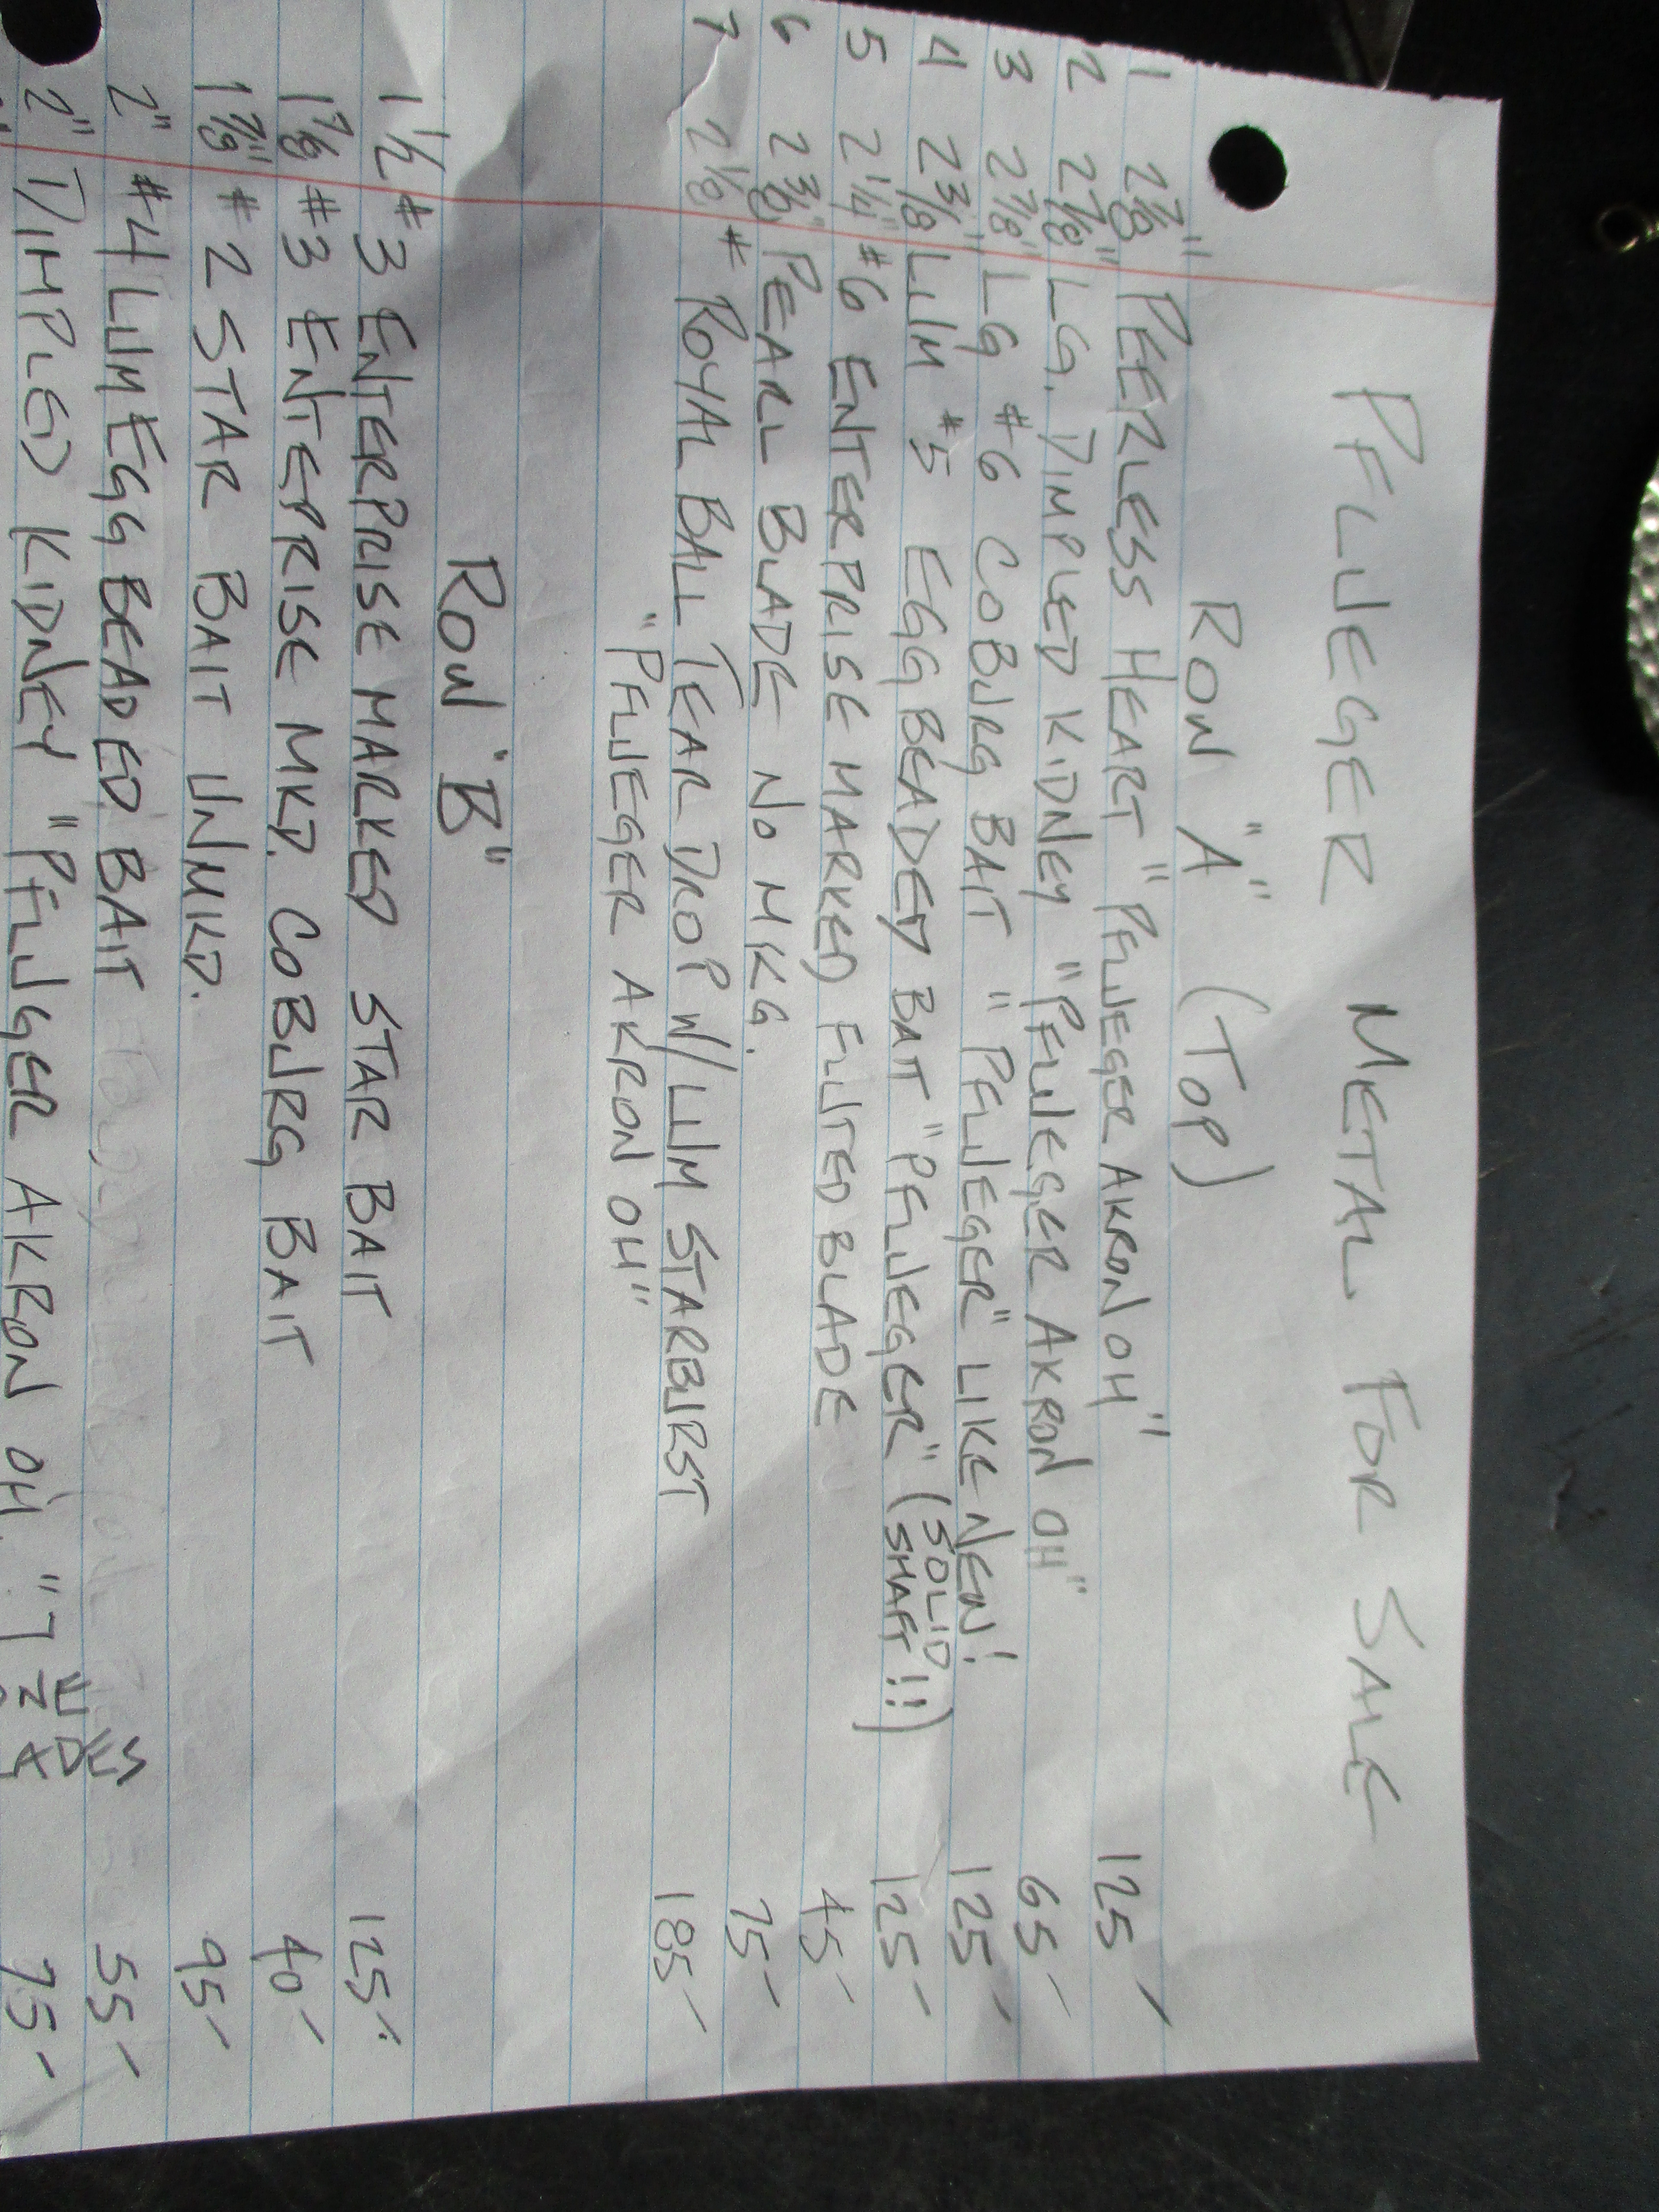 PFLUEGER METAL FOR SALE
ROW "A" (TOP)
1 2 7/8" PEERLESS HEART "PFLUEGER AKRON OH" 125-
2 2 7/8" LG. DIMPLED KIDNEY "PFLUEGER AKRON OH" 65-
3 2 7/8" LG #6 COBURG BAIT "PFLUEGER" LIKE NEW! 125-
4 2 3/8" LUM #5 EGG BEADED BAIT "PFLUEGER" (SOLID SHAFT!!) 125-
5 2 1/4" #6 ENTERPRISE MARKED FLUTED BLADE 45-
6 2 3/8" PEARL BLADE NO MKG. 75-
7 2 1/8" ROYAL BALL TEAR DROP W/LUM STARBURST 185-
"PFLUEGER AKRON OH"
ROW "B"
1 1/2 #3 ENTERPRISE MARKED STAR BAIT 125-
1 7/8 #3 ENTERPRISE MKD. COBURG BAIT 40-
1 7/8" #2 STAR BAIT UNMKD. 95-
2" #4 LUM EGG BEADED BAIT 55-
2" DIMPLED KIDNEY "PFLUGER AKRON OH." 75-